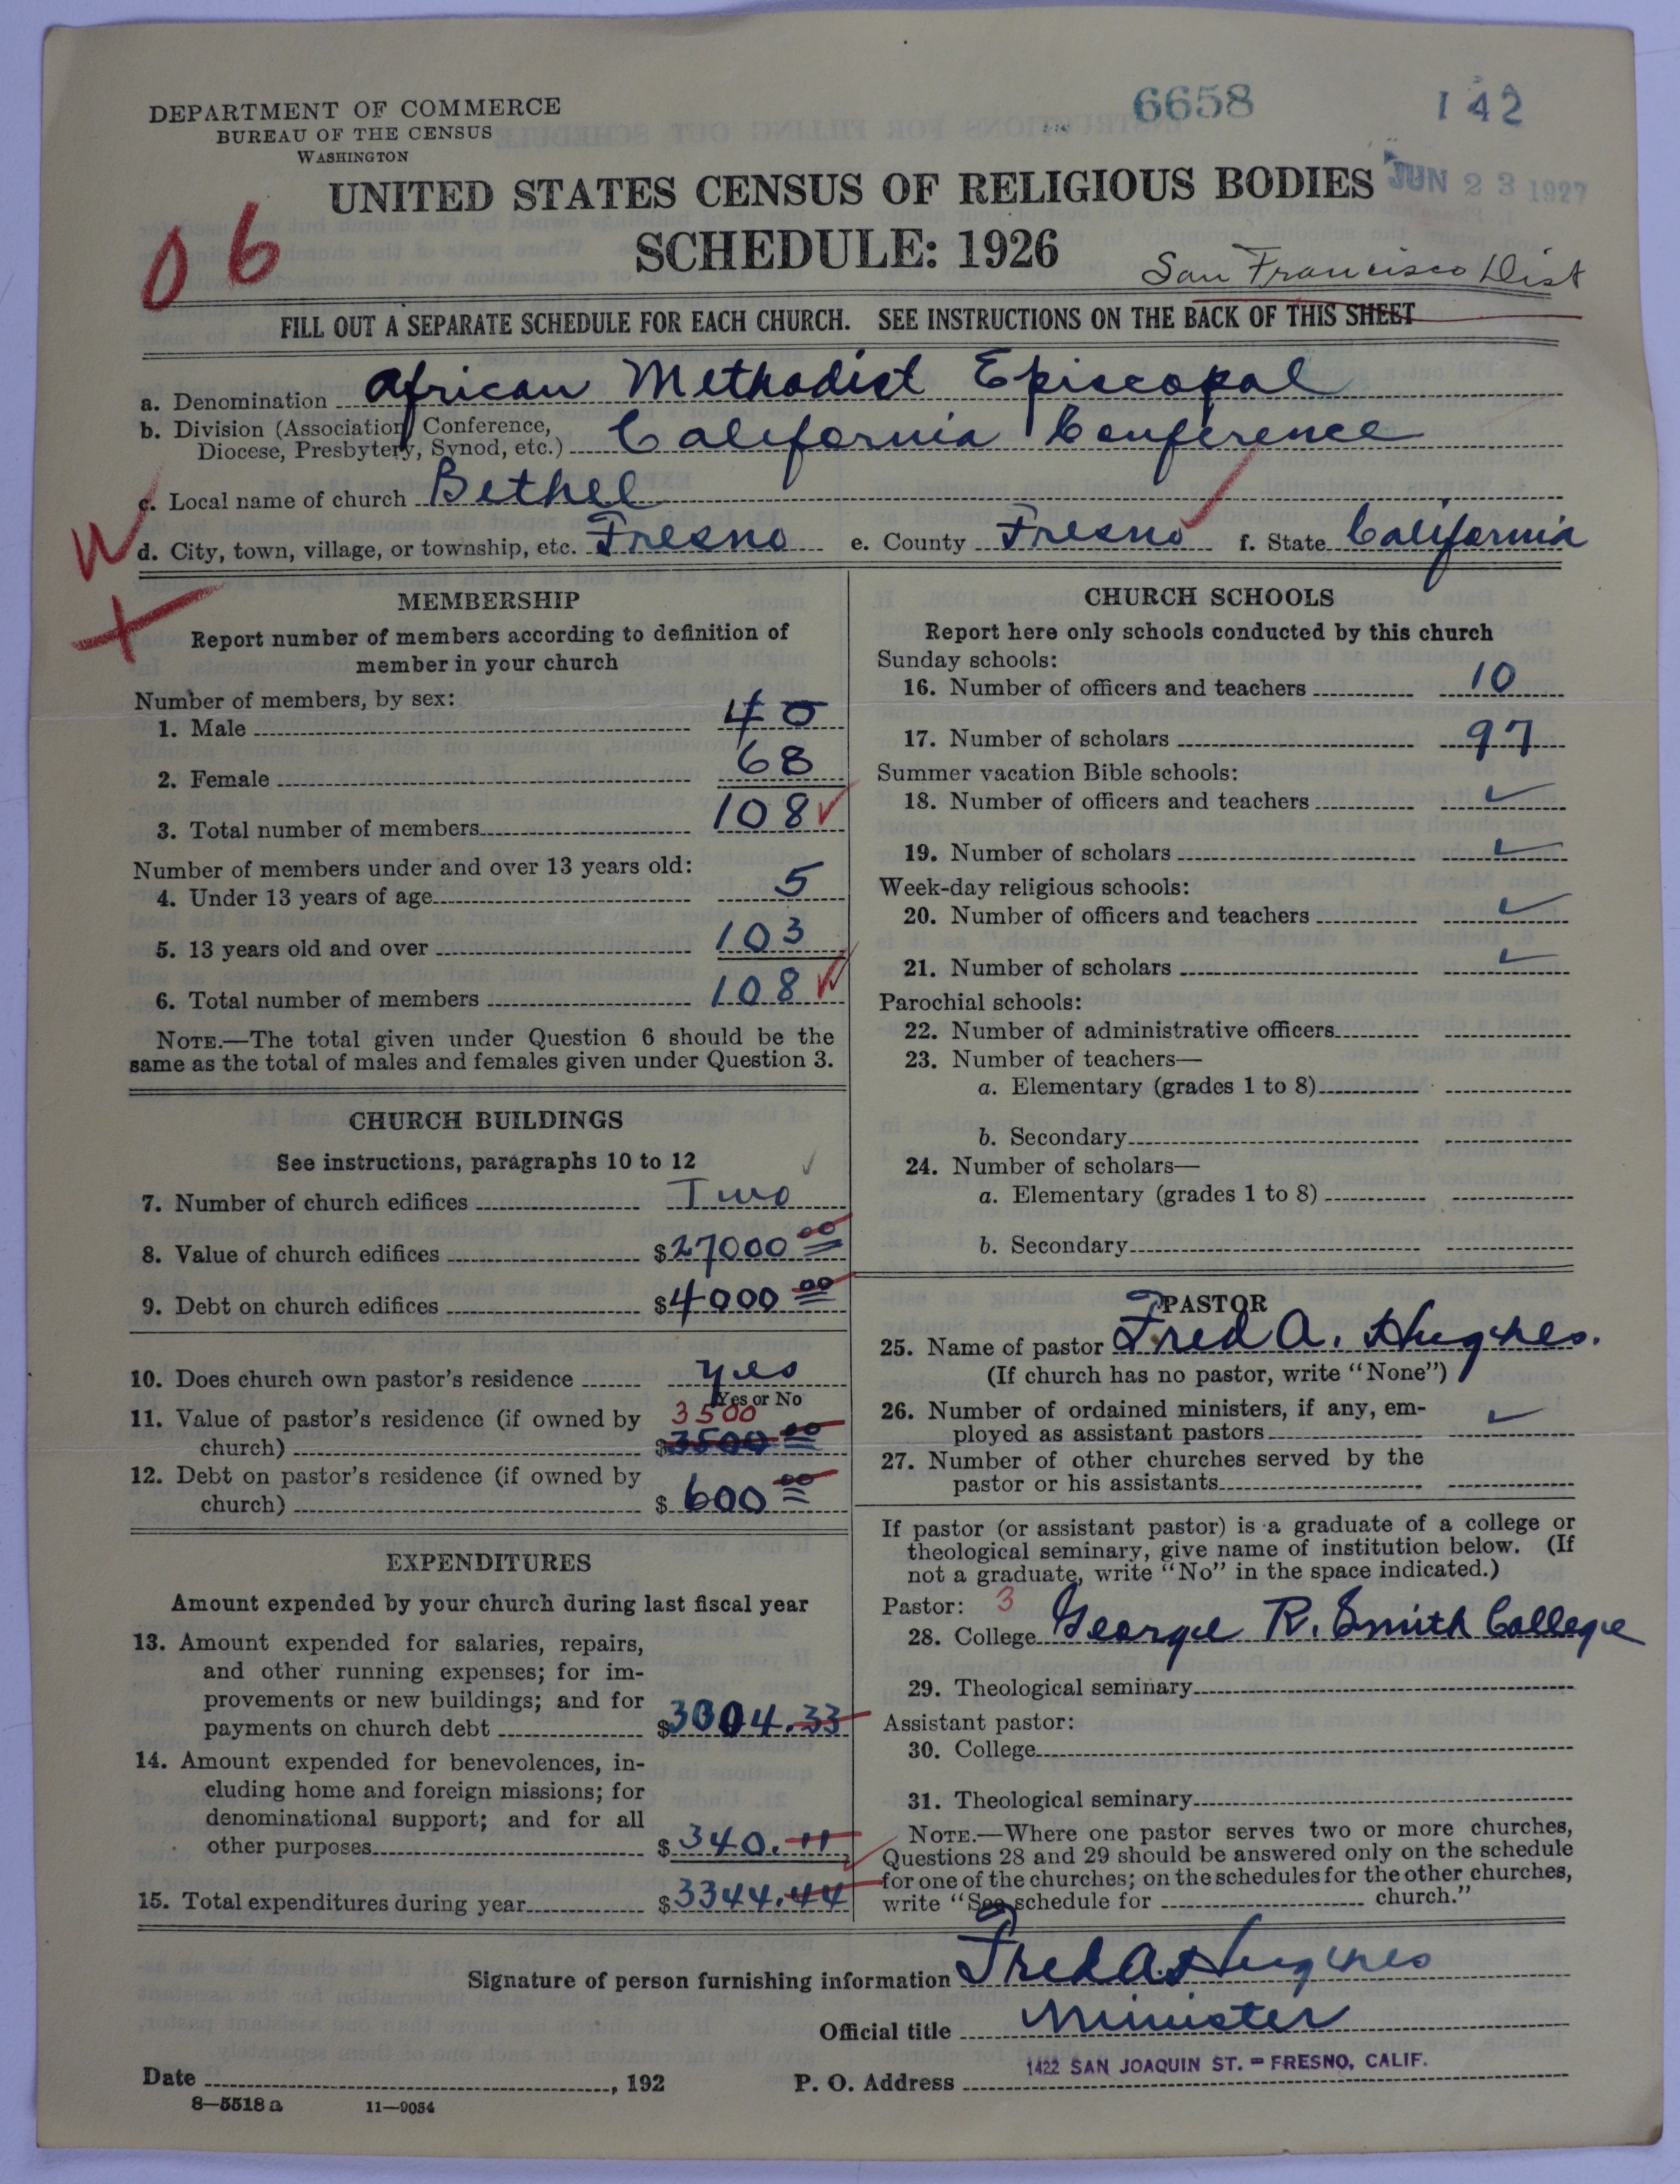 DEPARTMENT OF COMMERCE
BUREAU OF THE CENSUS
WASHINGTON
6658
142
JUN 23 1927
UNITED STATES CENSUS OF RELIGIOUS BODIES
SCHEDULE: 1926
06
San Francisco Dist
FILL OUT A SEPARATE SCHEDULE FOR EACH CHURCH. SEE INSTRUCTIONS ON THE BACK OF THIS SHEET
a. Denomination African Methodist Episcopal
b. Division (Association, Conference, Diocese, Presbytery, Synod, etc.) California Conference
c. Local name of church Bethel
W
d. City, town, village, or township, etc. Fresno e. County Fresno f. State California
MEMBERSHIP
Report number of members according to definition of
member in your church
Number of members, by sex:
1. Male 40
2. Female 68
3. Total number of members 108 ✓
Number of members under and over 13 years old:
4. Under 13 years of age 5
5. 13 years old and over 103
6. Total number of members 108 ✓
NOTE.—The total given under Question 6 should be the
same as the total of males and females given under Question 3.
CHURCH BUILDINGS
See instructions, paragraphs 10 to 12 ✓
7. Number of church edifices Two
8. Value of church edifices $27000 00
9. Debt on church edifices $4000 00
10. Does church own pastor's residence yes
Yes or No
11. Value of pastor's residence (if owned by 3500
church) $3500 00
12. Debt on pastor's residence (if owned by
church) $600 00
EXPENDITURES
Amount expended by your church during last fiscal year
13. Amount expended for salaries, repairs,
and other running expenses; for im-
provements or new buildings; and for
payments on church debt $3004.33
14. Amount expended for benevolences, in-
cluding home and foreign missions; for
denominational support; and for all
other purposes $340.11
15. Total expenditures during year $3344.44
CHURCH SCHOOLS
Report here only schools conducted by this church
Sunday schools:
16. Number of officers and teachers 10
17. Number of scholars 97
Summer vacation Bible schools:
18. Number of officers and teachers ✓
19. Number of scholars ✓
Week-day religious schools:
20. Number of officers and teachers ✓
21. Number of scholars ✓
Parochial schools:
22. Number of administrative officers
23. Number of teachers—
a. Elementary (grades 1 to 8)
b. Secondary
24. Number of scholars—
a. Elementary (grades 1 to 8)
b. Secondary
PASTOR
25. Name of pastor Fred A. Hughes.
(If church has no pastor, write "None")
26. Number of ordained ministers, if any, em-
ployed as assistant pastors ✓
27. Number of other churches served by the
pastor or his assistants
If pastor (or assistant pastor) is a graduate of a college or
theological seminary, give name of institution below. (If
not a graduate, write "No" in the space indicated.)
Pastor: 3
28. College George R. Smith College
29. Theological seminary
Assistant pastor:
30. College
31. Theological seminary
NOTE.—Where one pastor serves two or more churches,
Questions 28 and 29 should be answered only on the schedule
for one of the churches; on the schedules for the other churches,
write "See schedule for church."
Signature of person furnishing information Fred A. Hughes
Official title Minister
Date , 192 P. O. Address 1422 SAN JOAQUIN ST. = FRESNO, CALIF.
8—5518 a 11—9054